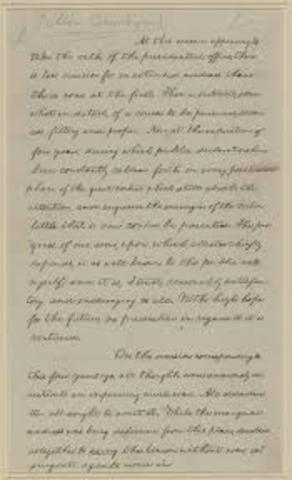 At this second appearing to
take the oath of the presidential office, there
is less occasion for an extended address than
there was at the first. Then a statement, some
what in detail, of a course to be pursued, seemed
fitting and proper. Now, at the expiration of
four years, during which public declarations have
been constantly called forth on every point and
phase of the great contest which still absorbs the
attention, and engrosses the energies of the nation,
little that is new could be presented. The pro-
gress of our arms, upon which all else chiefly
depends, is as well known to the public as to
myself; and it is, I trust, reasonably satisfac-
tory and encouraging to all. With high hope
for the future, no prediction in regard to it is
ventured.
On the occasion corresponding to
this four years ago, all thoughts were anxiously di-
rected to an impending civil war. All dreaded
it all sought to avert it. While the inaugeral
address was being delivered from this place, devoted
altogether to saving the Union without war, in-
surgent agents were in